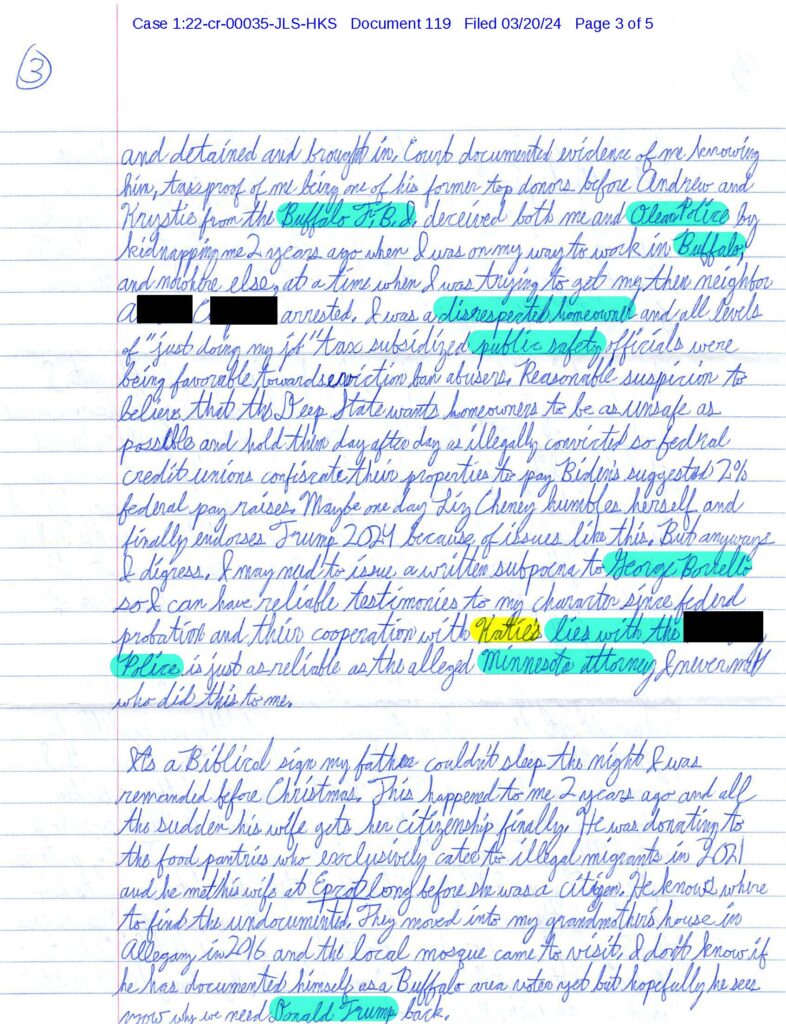 Case 1:22-cr-00035-JLS-HKS Document 119 Filed 03/20/24 Page 3 of 5
3
and detained and brought in. Court documented evidence of me knowing
him, tax proof of me being one of his former top donors before Andrew and
Krystie from the Buffalo F.B.I. deceived both me and Olean Police by
kidnapping me 2 years ago when I was on my way to work in Buffalo,
and nowhere else, at a time when I was trying to get my then neighbor
A C arrested. I was a disrespected homeowner and all levels
of "just doing my job" tax subsidized public safety officials were
being favorable towards eviction ban abusers. Reasonable suspicion to
believe that the Deep State wants homeowners to be as unsafe as
possible and hold them day after day as illegally convicted so federal
credit unions confiscate their properties to pay Biden's suggested 2%
federal pay raises. Maybe one day Liz Cheney humbles herself and
finally endorses Trump 2024 because of issues like this. But anyways
I digress. I may need to issue a written subpoena to George Borrello
so I can have reliable testimonies to my character since federl
probation and their cooperation with Katie's lies with the
Police is just as reliable as the alleged Minnesota attorney I never met
who did this to me.
It's a Biblical sign my father couldn't sleep the night I was
remanded before Christmas. This happened to me 2 years ago and all
the sudden his wife gets her citizenship finally. He was donating to
the food pantries who exclusively cater to illegal migrants in 2021
and he met his wife at long before she was a citizen. He knows where
to find the undocumented. They moved into my grandmother's house in
Allegany in 2016 and the local mosque came to visit. I don't know if
he has documented himself as a Buffalo area voter yet but hopefully he sees
now why we need Donald Trump back.